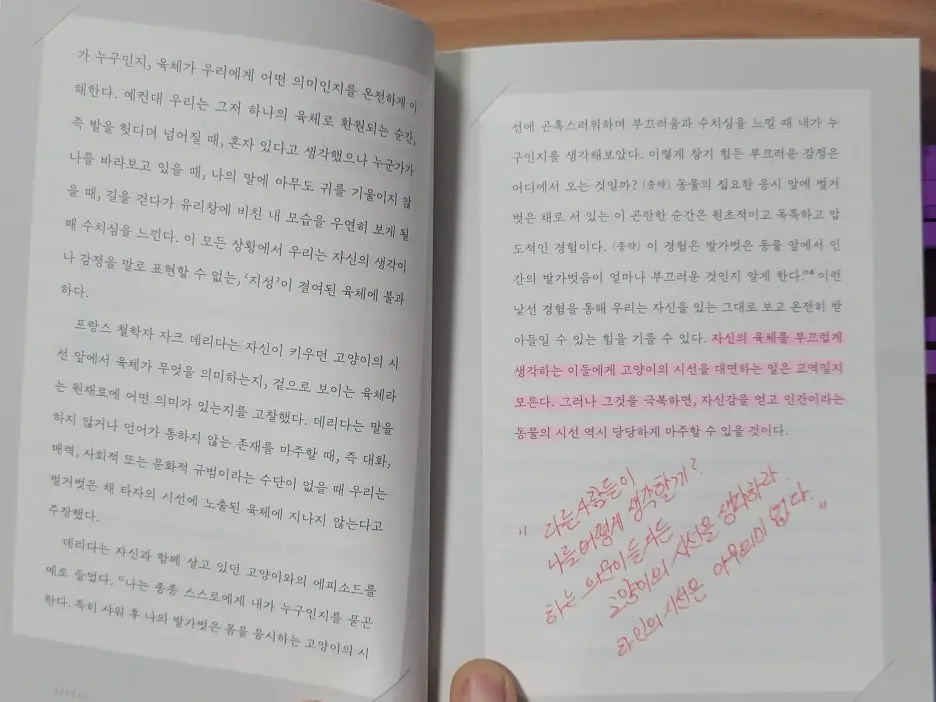 가 누구인지, 육체가 우리에게 어떤 의미인지를 온전하게 이
해한다. 예컨대 우리는 그저 하나의 육체로 환원되는 순간,
즉 발을 헛디며 넘어질 때, 혼자 있다고 생각했으나 누군가가
나를 바라보고 있을 때, 나의 말에 아무도 귀를 기울이지 않
을 때, 길을 걷다가 유리창에 비친 내 모습을 우연히 보게 될
때 수치심을 느낀다. 이 모든 상황에서 우리는 자신의 생각이
나 감정을 말로 표현할 수 없는, ‘지성’이 결여된 육체에 불과
하다.
프랑스 철학자 자크 데리다는 자신이 키우던 고양이의 시
선 앞에서 육체가 무엇을 의미하는지, 겉으로 보이는 육체라
는 원재료에 어떤 의미가 있는지를 고찰했다. 데리다는 말을
하지 않거나 언어가 통하지 않는 존재를 마주할 때, 즉 대화,
매력, 사회적 또는 문화적 규범이라는 수단이 없을 때 우리는
벌거벗은 채 타자의 시선에 노출된 육체에 지나지 않는다고
주장했다.
데리다는 자신과 함께 살고 있던 고양이와의 에피소드를
예로 들었다. “나는 종종 스스로에게 내가 누구인지를 묻곤
한다. 특히 샤워 후 나의 발가벗은 몸을 응시하는 고양이의 시
선에 곤혹스러워하며 부끄러움과 수치심을 느낄 때 내가 누
구인지를 생각해보았다. 이렇게 참기 힘든 부끄러운 감정은
어디에서 오는 것일까? (중략) 동물의 집요한 응시 앞에 벌거
벗은 채로 서 있는 이 곤란한 순간은 원초적이고 독특하고 압
도적인 경험이다. (중략) 이 경험은 발가벗은 동물 앞에서 인
간의 발가벗음이 얼마나 부끄러운 것인지 알게 한다.” 이런
낯선 경험을 통해 우리는 자신을 있는 그대로 보고 온전히 받
아들일 수 있는 힘을 기를 수 있다. 자신의 육체를 부끄럽게
생각하는 이들에게 고양이의 시선을 대면하는 일은 고역일지
모른다. 그러나 그것을 극복하면, 자신감을 얻고 인간이라는
동물의 시선 역시 당당하게 마주할 수 있을 것이다.
" 다른사람들이
나를 어떻게 생각할까?
하는 의문이 들 때는
고양이의 시선을 생각하라.
타인의 시선은 아무의미 없다. "